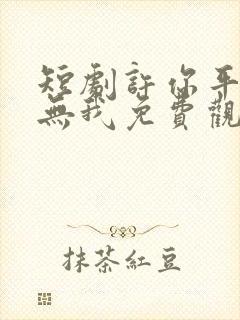 短劇許你平
無我免費觀
抹茶紅豆